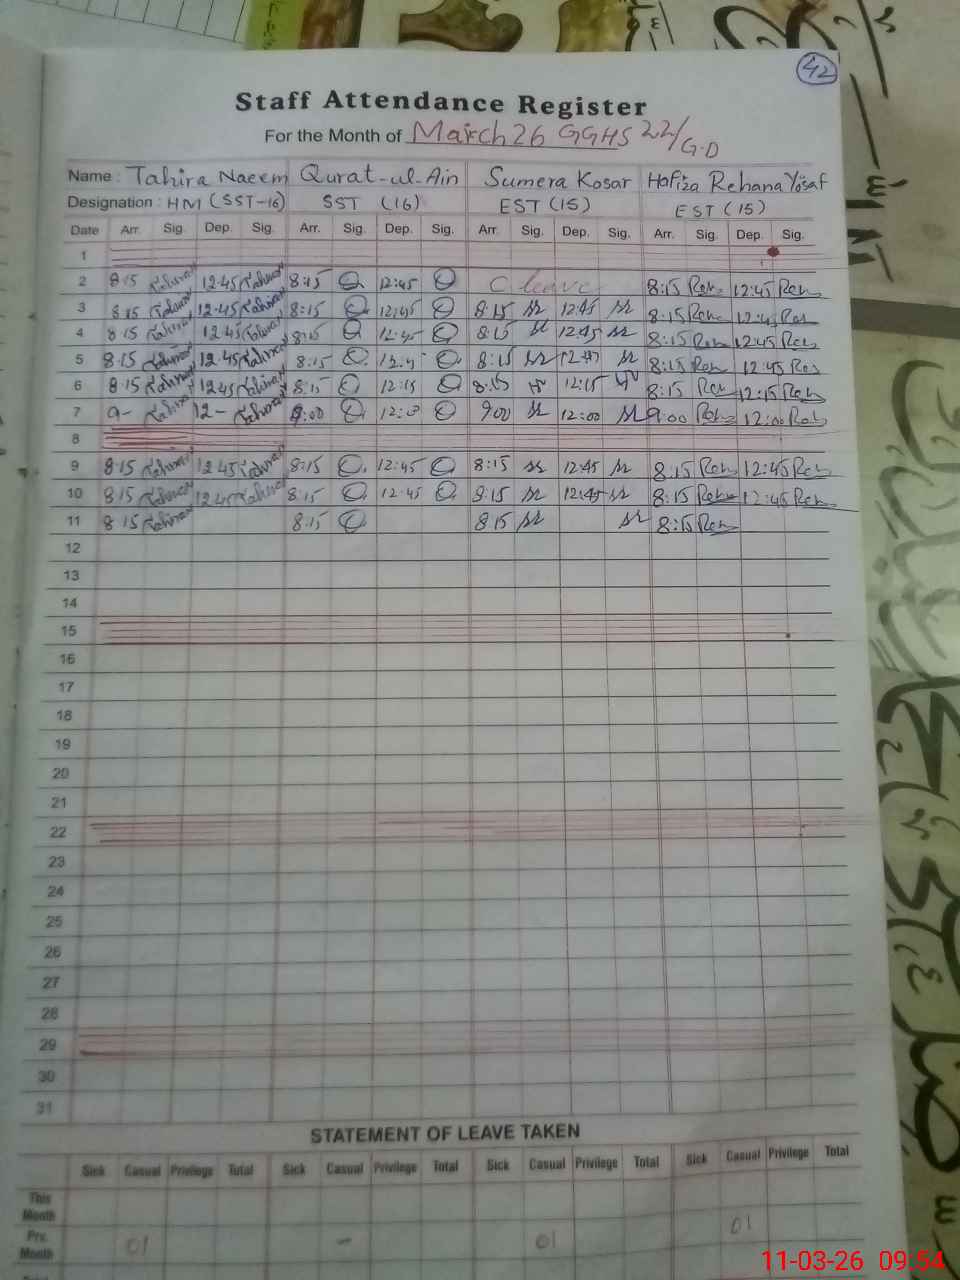 42
Staff Attendance Register
For the Month of March 26 GGHS 22/G.D
Name : Tahira Naeem Qurat-ul-Ain Sumera Kosar Hafiza Rehana Yosaf
Designation : HM (SST-16) SST (16) EST (15) EST (15)
Date Arr. Sig. Dep. Sig. Arr. Sig. Dep. Sig. Arr. Sig. Dep. Sig. Arr. Sig. Dep. Sig.
1
2 8:15 Tahira 12:45 Tahira 8:15 12:45 C leave 8:15 Reh 12:45 Reh
3 8:15 Tahira 12:45 Tahira 8:15 12:45 8:15 12:45 8:15 Reh 12:45 Reh
4 8:15 Tahira 12:45 Tahira 8:15 12:45 8:15 12:45 8:15 Reh 12:45 Reh
5 8:15 Tahira 12:45 Tahira 8:15 8:15 8:15 Reh 12:45 Reh
6 8:15 Tahira 12:45 Tahira 8:15 12:15 8:15 12:15 8:15 Reh 12:15 Reh
7 9- Tahira 12- Tahira 9:00 12:00 9:00 12:00 9:00 Reh 12:00 Reh
8
9 8:15 Tahira 12:45 Tahira 8:15 12:45 8:15 12:45 8:15 Reh 12:45 Reh
10 8:15 Tahira 12:45 Tahira 8:15 12:45 8:15 12:45 8:15 Reh 12:45 Reh
11 8:15 Tahira 8:15 8:15 8:15 Reh
12
13
14
15
16
17
18
19
20
21
22
23
24
25
26
27
28
29
30
31
STATEMENT OF LEAVE TAKEN
Sick Casual Privilege Total Sick Casual Privilege Total Sick Casual Privilege Total Sick Casual Privilege Total
This Month
Prv. Month 01 - 01 01
Total
11-03-26 09:54